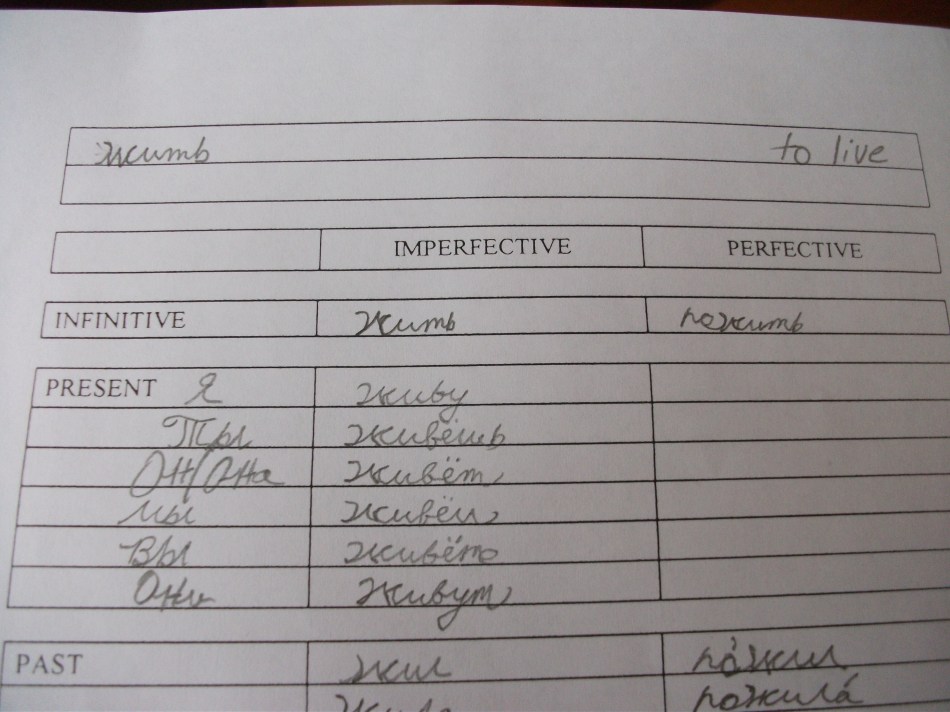 жить to live
IMPERFECTIVE PERFECTIVE
INFINITIVE жить пожить
PRESENT Я живу
Ты живёшь
Он/Она живёт
мы живём
Вы живёте
Они живут
PAST жил по́жил
жила пожила́